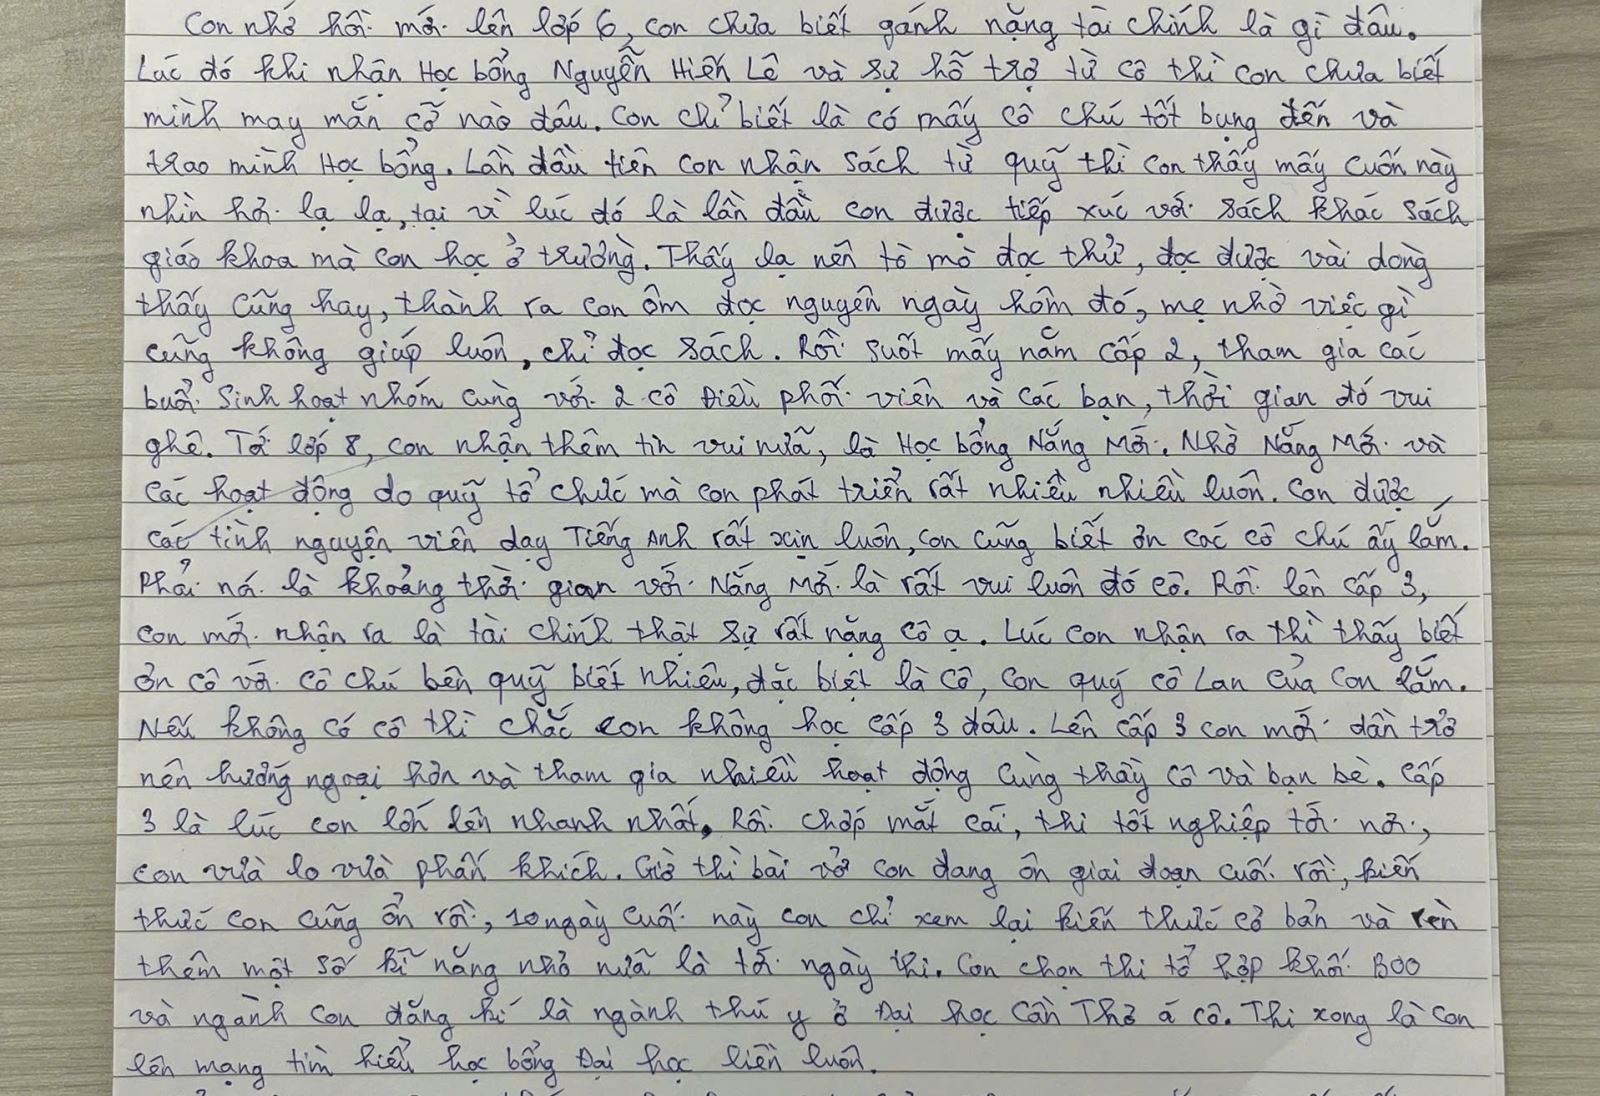 Con nhớ hồi mới lên lớp 6, con chưa biết gánh nặng tài chính là gì đâu.
Lúc đó khi nhận Học bổng Nguyễn Hiến Lê và sự hỗ trợ từ cô thì con chưa biết
mình may mắn cỡ nào đâu. Con chỉ biết là có mấy cô chú tốt bụng đến và
trao mình Học bổng. Lần đầu tiên con nhận sách từ quỹ thì con thấy mấy cuốn này
nhìn hơi lạ lạ, tại vì lúc đó là lần đầu con được tiếp xúc với sách khác sách
giáo khoa mà con học ở trường. Thấy lạ nên tò mò đọc thử, đọc được vài dòng
thấy cũng hay, thành ra con ôm đọc nguyên ngày hôm đó, mẹ nhờ việc gì
cũng không giúp luôn, chỉ đọc sách. Rồi suốt mấy năm cấp 2, tham gia các
buổi sinh hoạt nhóm cùng với 2 cô Điều phối viên và các bạn, thời gian đó vui
ghê. Tới lớp 8, con nhận thêm tin vui nữa, là Học bổng Nắng Mới. Nhờ Nắng Mới và
các hoạt động do quỹ tổ chức mà con phát triển rất nhiều nhiều luôn. Con được
các tình nguyện viên dạy Tiếng Anh rất xịn luôn, con cũng biết ơn các cô chú ấy lắm.
Phải nói là khoảng thời gian với Nắng Mới là rất vui luôn đó cô. Rồi lên cấp 3,
con mới nhận ra là tài chính thật sự rất nặng cô ạ. Lúc con nhận ra thì thấy biết
ơn cô với cô chú bên quỹ biết nhiêu, đặc biệt là cô, con quý cô Lan của con lắm.
Nếu không có cô thì chắc con không học cấp 3 đâu. Lên cấp 3 con mới dần trở
nên hướng ngoại hơn và tham gia nhiều hoạt động cùng thầy cô và bạn bè. Cấp
3 là lúc con lớn lên nhanh nhất. Rồi chớp mắt cái, thi tốt nghiệp tới nơi,
con vừa lo vừa phấn khích. Giờ thì bài vở con đang ôn giai đoạn cuối rồi, kiến
thức con cũng ổn rồi, 10 ngày cuối này con chỉ xem lại kiến thức cơ bản và rèn
thêm một số kĩ năng nhỏ nữa là tới ngày thi. Con chọn thi tổ hợp khối B00
và ngành con đăng kí là ngành thú y ở Đại học Cần Thơ á cô. Thi xong là con
lên mạng tìm hiểu học bổng Đại học liền luôn.